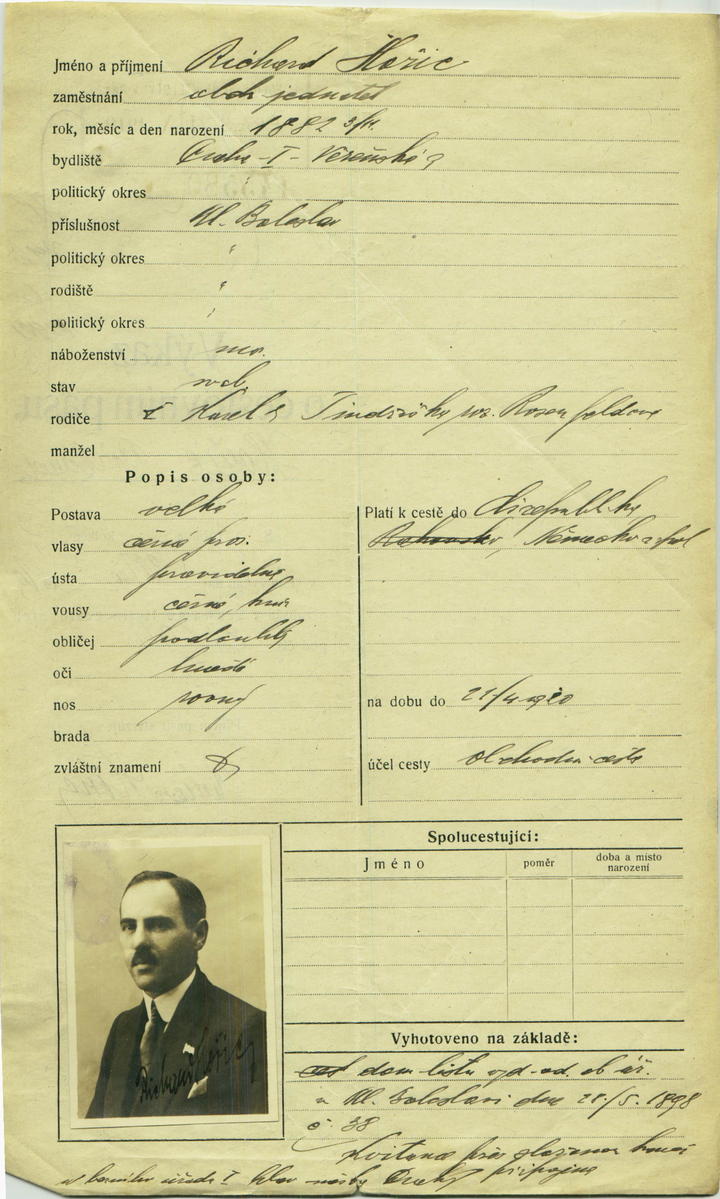 Jméno a příjmení Richard Hořic
zaměstnání obch jednatel
rok, měsíc a den narození 1882 3/
bydliště Praha - I - Vězeňská 9
politický okres
příslušnost Ml. Boleslav
politický okres "
rodiště "
politický okres "
náboženství moj.
stav svob.
rodiče Karel Jindřiška roz. Rosenfeldova
manžel
Popis osoby:
Postava velká
vlasy černé pros.
ústa pravidelná
vousy černé, knír
obličej podlouhlý
oči hnědé
nos rovný
brada
zvláštní znamení
Platí k cestě do čs republiky
Rakousko, Německo a zpět
na dobu do 21/4 1920
účel cesty Obchodní cesta
Spolucestující:
Jméno poměr doba a místo narození
Vyhotoveno na základě:
dom listu vyd. od ob úř.
v Ml. Boleslavi dne 28./5. 1898
č 38
Richard Hořic
Kvitance přes připojena
u úřadu I Prahy